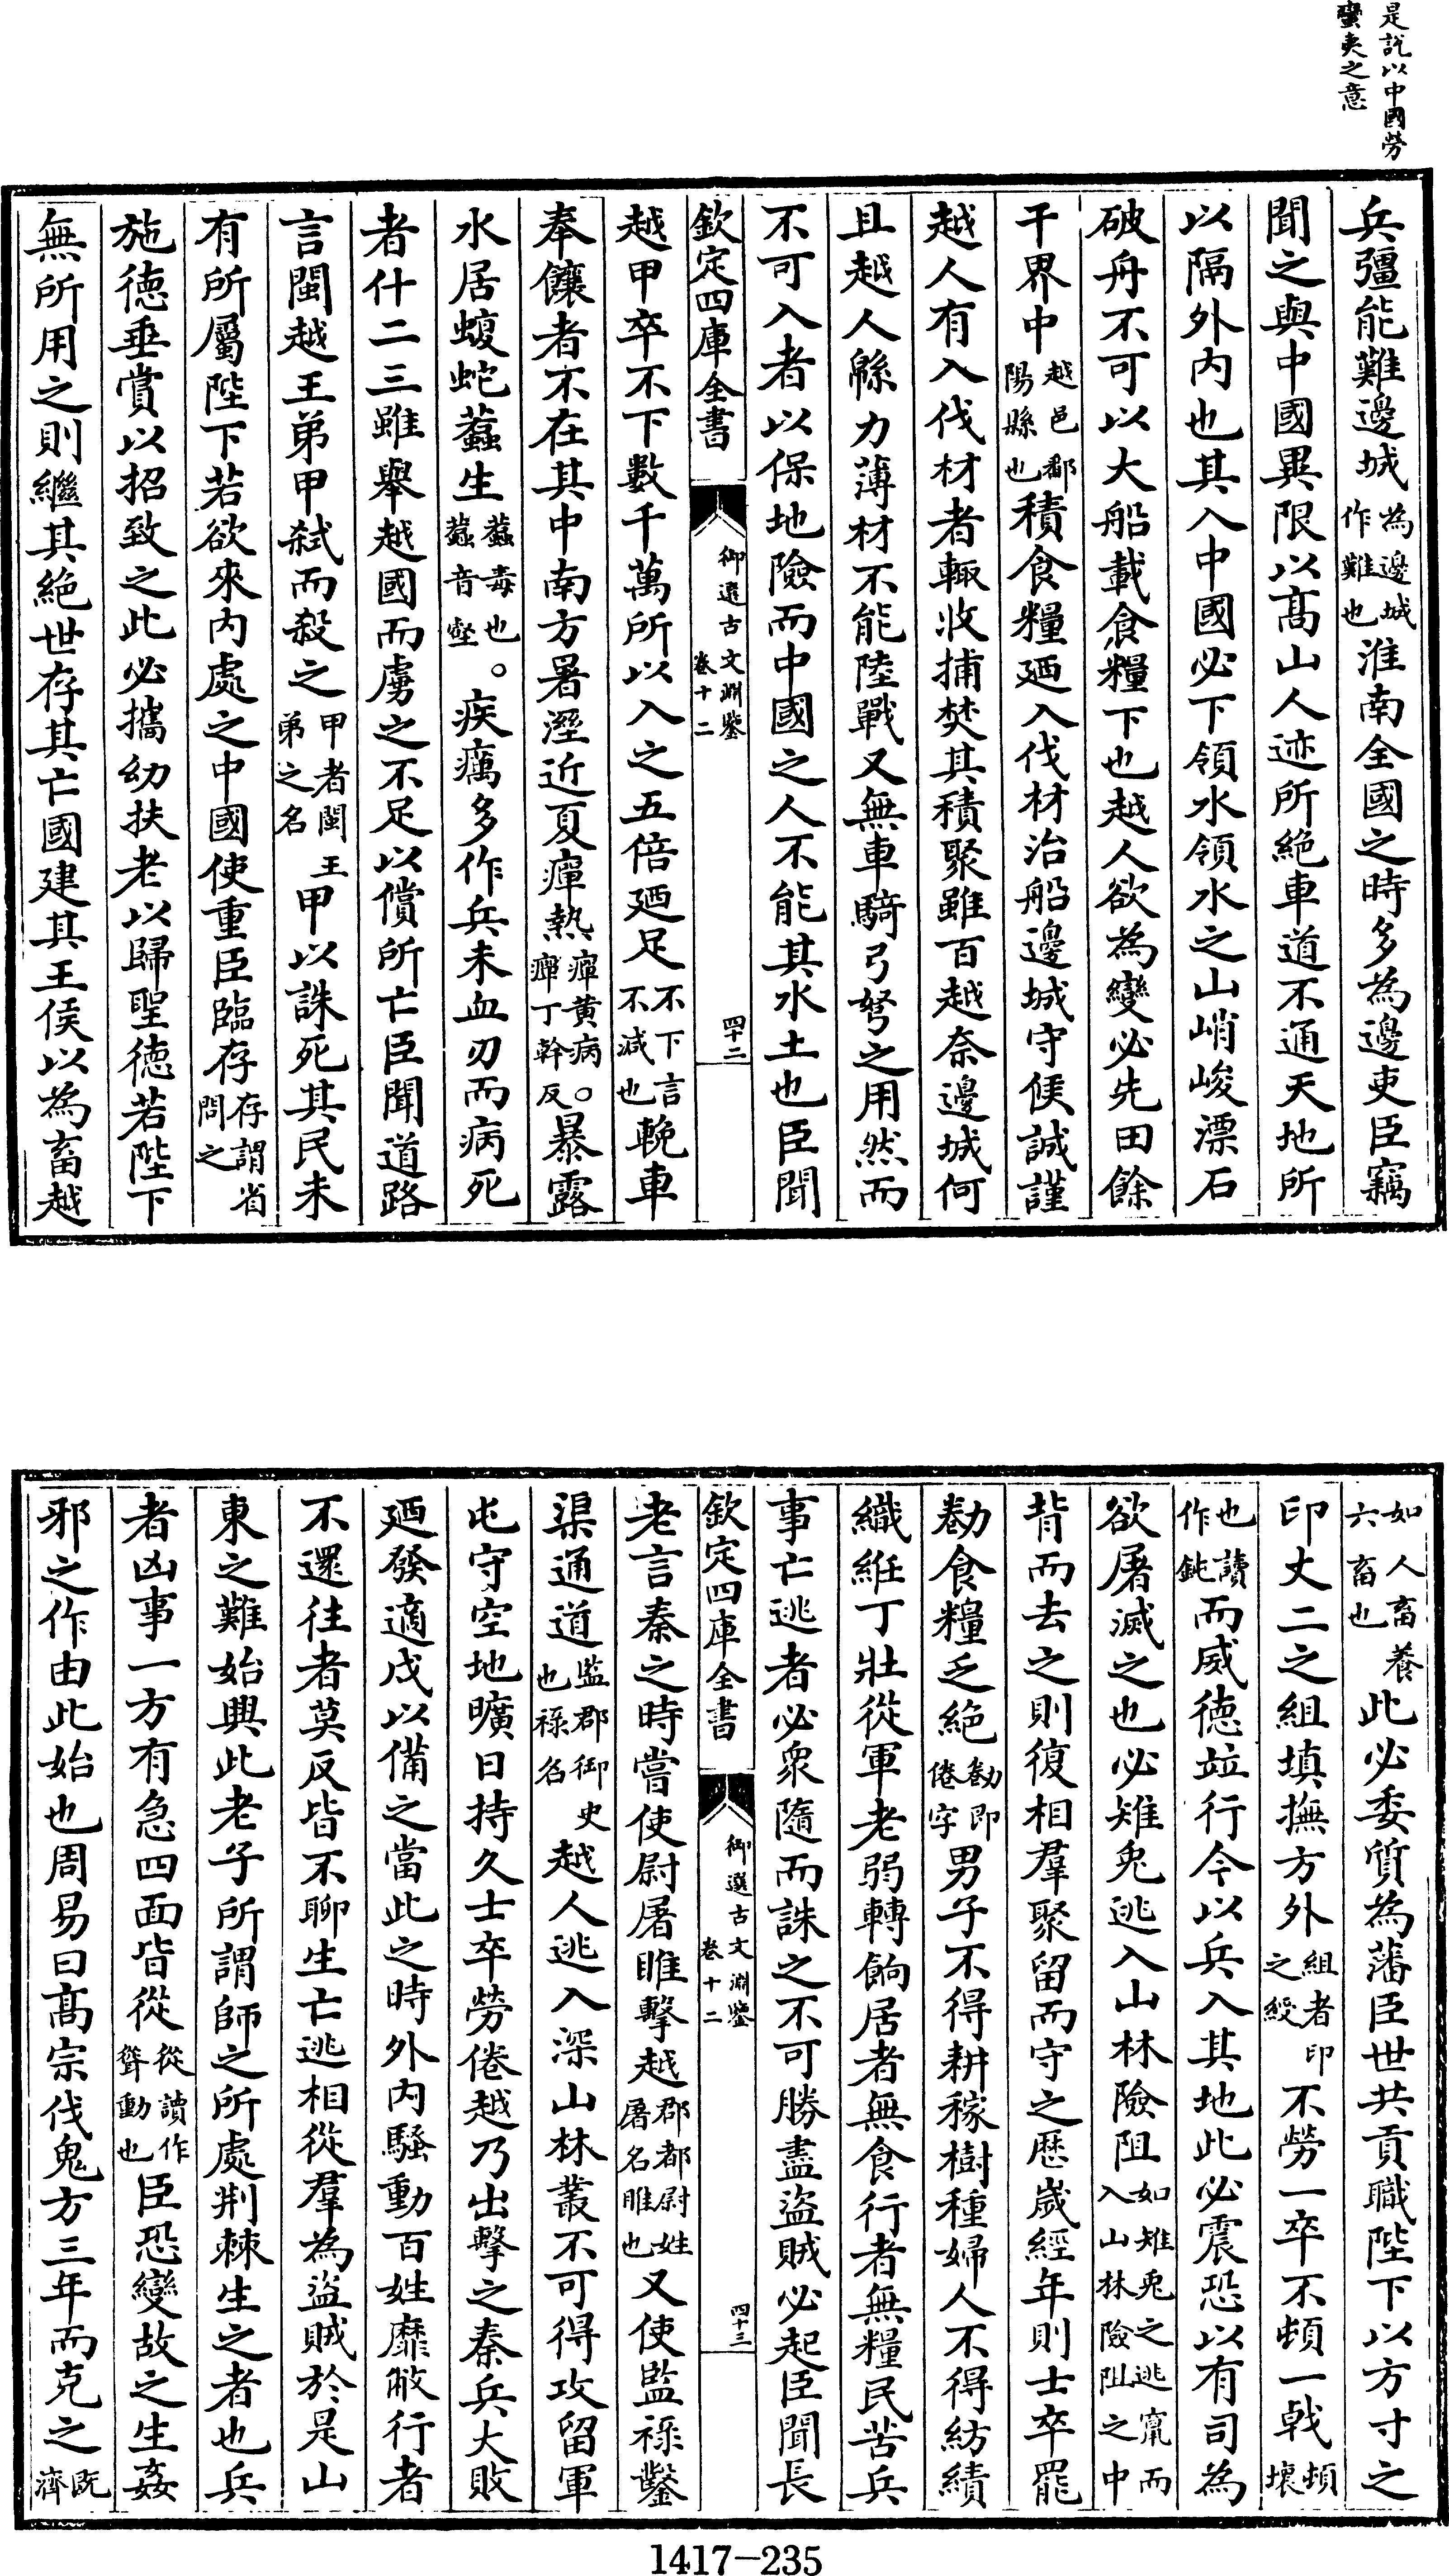 是說以中國勞
蠻夷之意
兵彊能難邊城為邊城作難也淮南全國之時多為邊吏臣竊
聞之與中國異限以髙山人迹所絶車道不通天地所
以隔外内也其入中國必下領水領水之山峭峻漂石
破舟不可以大船載食糧下也越人欲為變必先田餘
干界中越邑鄱陽縣也積食糧廼入伐材治船邊城守候誠謹
越人有入伐材者輙收捕焚其積聚雖百越奈邊城何
且越人緜力薄材不能陸戰又無車騎弓弩之用然而
不可入者以保地險而中國之人不能其水土也臣聞
欽定四庫全書
御選古文淵鑒
卷十二
四十二
越甲卒不下數千萬所以入之五倍廼足不下言不減也輓車
奉饟者不在其中南方暑溼近夏癉熱癉黄病○癉丁幹反暴露
水居蝮蛇蠚生蠚毒也。蠚音壑疾癘多作兵未血刃而病死
者什二三雖舉越國而虜之不足以償所亡臣聞道路
言閩越王弟甲弑而殺之甲者閩王弟之名甲以誅死其民未
有所屬陛下若欲來内處之中國使重臣臨存存謂省問之
施德垂賞以招致之此必攜幼扶老以歸聖德若陛下
無所用之則繼其絶世存其亡國建其王侯以為畜越
如人畜養六畜也此必委質為藩臣世共貢職陛下以方寸之
印丈二之組填撫方外組者印之綬不勞一卒不頓一戟頓壞
也讀作鈍而威德竝行今以兵入其地此必震恐以有司為
欲屠滅之也必雉兎逃入山林險阻如雉兎之逃竄而入山林險阻之中
背而去之則復相羣聚留而守之歴嵗經年則士卒罷
勌食糧乏絶勌即倦字男子不得耕稼樹種婦人不得紡績
織絍丁壯從軍老弱轉餉居者無食行者無糧民苦兵
事亡逃者必衆隨而誅之不可勝盡盜賊必起臣聞長
欽定四庫全書
御選古文淵鑒
卷十二
四十三
老言秦之時嘗使尉屠睢擊越郡都尉姓屠名睢也又使監禄鑿
渠通道監郡御史也禄名越人逃入深山林叢不可得攻留軍
屯守空地曠日持久士卒勞倦越乃出擊之秦兵大敗
廼發適戍以備之當此之時外内騷動百姓靡敝行者
不還往者莫反皆不聊生亡逃相從羣為盜賊於是山
東之難始興此老子所謂師之所處荆棘生之者也兵
者凶事一方有急四面皆從從讀作聳動也臣恐變故之生姦
邪之作由此始也周易曰髙宗伐鬼方三年而克之既濟
1417-235